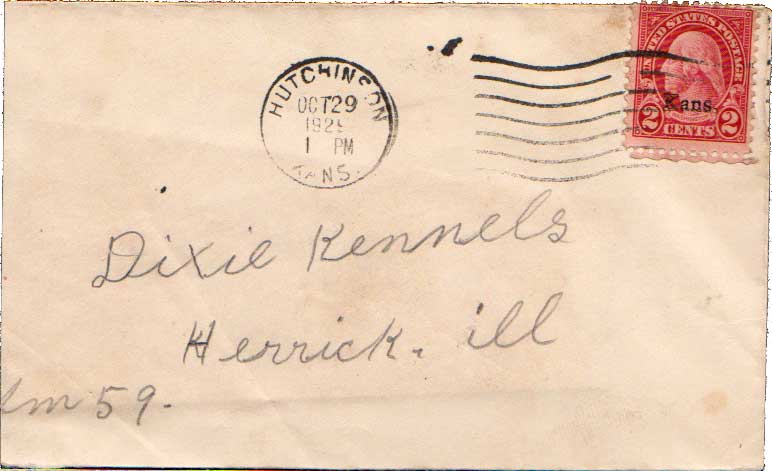 HUTCHINSON
OCT 29
1 PM
KANS.
UNITED STATES POSTAGE
Kans.
2 CENTS 2
Dixie Kennels
Herrick. ill
59.